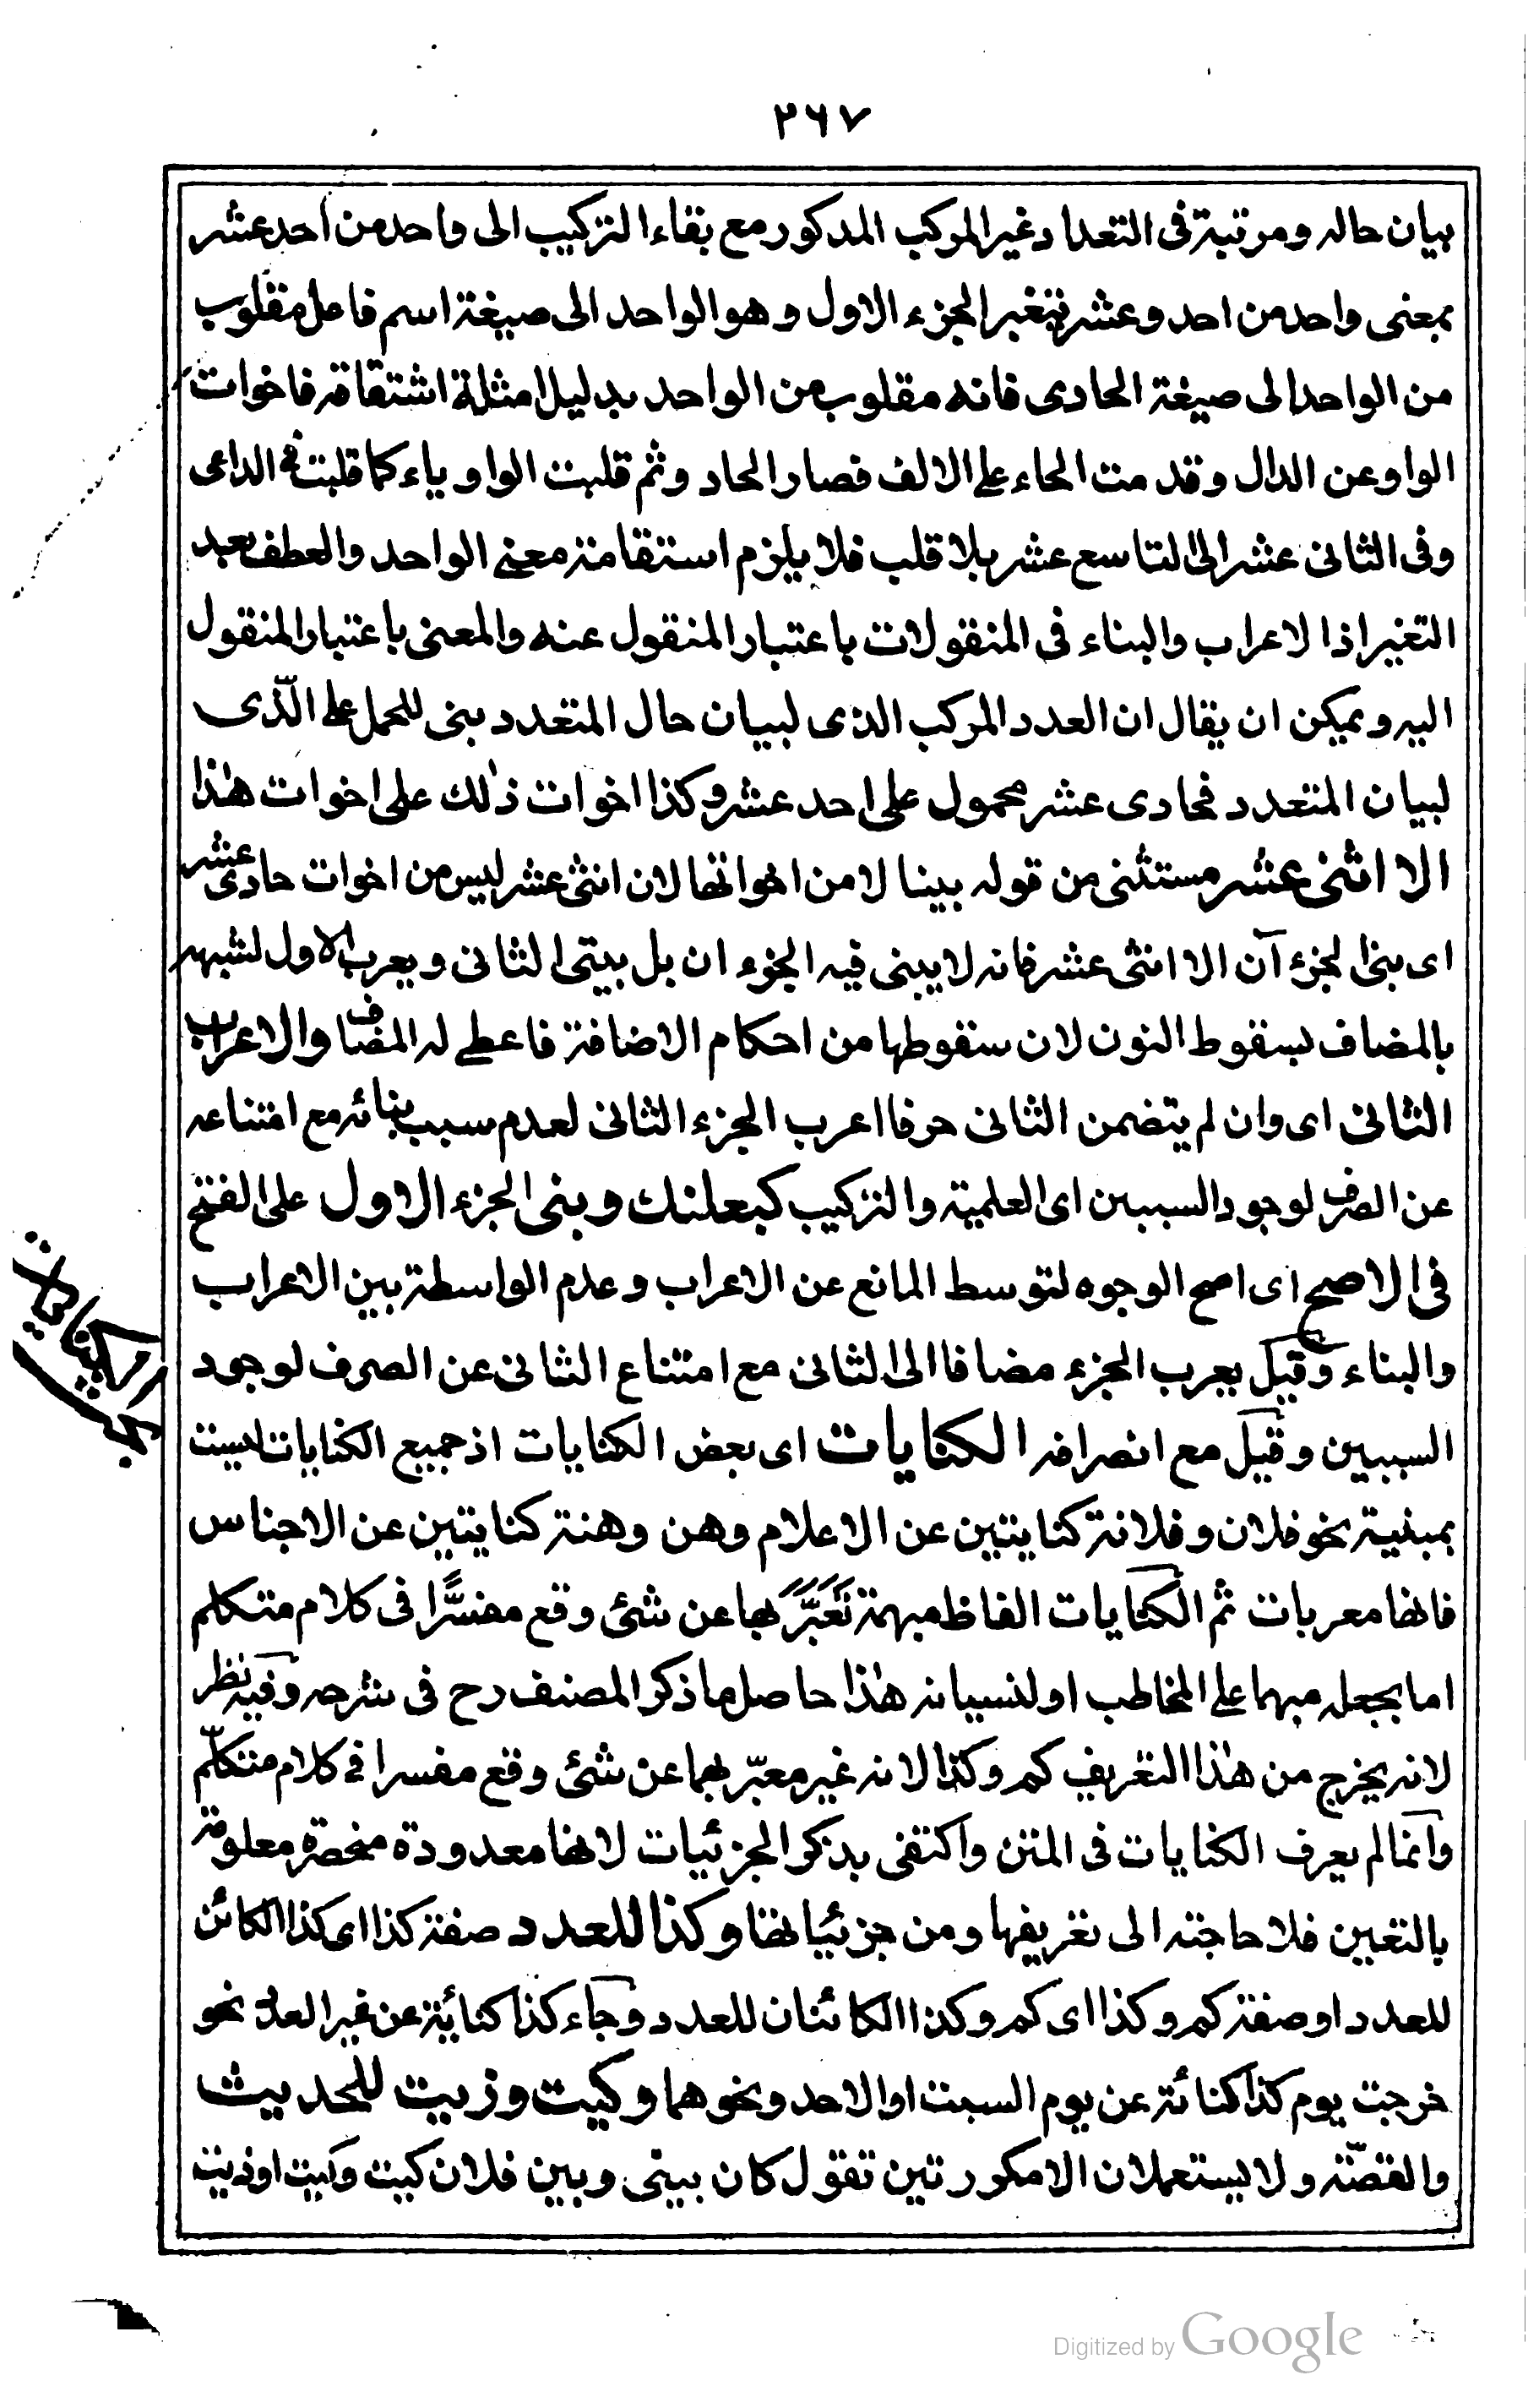 ٣٦٧
بيان حاله ومرتبة فى التعداد غير المركب المدكور مع بقاء التركيب الى واحد من احد عشر
بمعنى واحد من احد وعشر بتغير الجزء الاول وهو الواحد الى صيغة اسم فاعل مقلوب
من الواحد الى صيغة الحادى فانه مقلوب من الواحد بدليل امثلة اشتقاقه فاخرات
الواو عن الدال وقدمت الحاء على الالف فصار الحادو ثم قلبت الواو ياء كما قلبت فى الداعى
وفى الثانى عشر الى التاسع عشر بلا قلب فلا يلزم استقامة معنى الواحد والعطف بعد
التغير اذ الاعراب والبناء فى المنقولات باعتبار المنقول عنه والمعنى باعتبار المنقول
اليه ويمكن ان يقال ان العدد المركب الذى لبيان حال المتعدد بنى للحمل على الّذى
لبيان المتعدد فحادى عشر محمول على احد عشر وكذا اخوات ذلك على اخوات هذا
الا اثنى عشر مستثنى من قوله بينا لا من اخواتها لان اثنى عشر ليس من اخوات حادى عشر
اى بنى الجزء آن الا اثنى عشر فانه لا يبنى فيه الجزء ان بل يبتى الثانى ويعرب الاول لشبهه
بالمضاف بسقوط النون لان سقوطها من احكام الاضافة فاعطى له المضاف والا عرب
الثانى اى وان لم يتضمن الثانى حرفا اعرب الجزء الثانى لعدم سبب بنائه مع امتناعه
عن الصرف لوجود السببين اى العلمية والتركيب كبعلبك وبنى الجزء الاول على الفتح
فى الاصح اى اصح الوجوه لتوسط المانع عن الاعراب وعدم الواسطة بين الاعراب
والبناء وقيل يعرب الجزء مضافا الى الثانى مع امتناع الثانى عن الصرف لوجود
السببين وقيل مع انصرافه الكنايات اى بعض الكنايات اذ جميع الكنايات ليست
بمبنية نحو فلان وفلانة كنايتين عن الاعلام وهن وهنة كنايتين عن الاجناس
فانها معربات ثم الكنايات الفاظ مبهمة تعبّر بها عن شئ وقع مفسّرا فى كلام متكلم
اما بجعله مبهما على المخاطب او لنسيانه هذا حاصل ما ذكر المصنف رح فى شرحه وفيه نظر
لانه يخرج من هذا التعريف كم وكذا لانه غير معبّر بهما عن شئ وقع مفسرا فى كلام متكلّم
وانما لم يعرف الكنايات فى المتن واكتفى بذكر الجزئيات لانها معدودة منحصرة معلومة
بالتعين فلا حاجته الى تعريفها ومن جزئياتها وكذا للعدد صفة كذا اى كذا الكائن
للعدد او صفة كم وكذا اى كم وكذا الكائنان للعدد وجاء كذا كناية عن غير العدد نحو
خرجت يوم كذا كنائة عن يوم السبت او الاحد ونحوهما وكيت وزيت للحديث
والقصّة ولا يستعملان الا مكورتين تقول كان بينى وبين فلان كيت وكيت او ذيت
بحث الكنايات
Digitized by Google